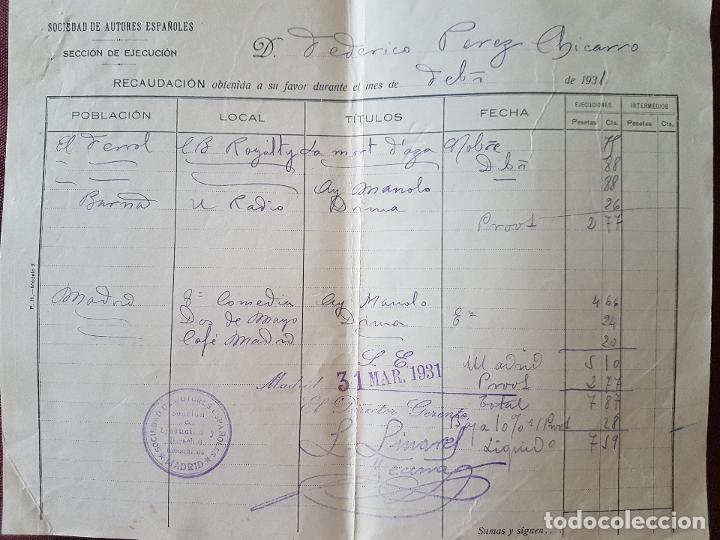 SOCIEDAD DE AUTORES ESPAÑOLES
SECCIÓN DE EJECUCIÓN
D. Federico Perez Chicarro
RECAUDACIÓN obtenida a su favor durante el mes de Febº de 1931
POBLACIÓN LOCAL TÍTULOS FECHA EJECUCIONES INTERMEDIOS
Pesetas Cts. Pesetas Cts.
El Ferrol CB Royalty La mort d'aga Nobre 75
Dbñ 88
Ay Manolo 88
Barna U Radio Drima 26
Prov 2 77
Madrid Zª Comedia Ay Manolo Eº 4 66
Dos de Mayo Drima 24
Café Madrid 20
S. E. Madrid 5 10
Madrid 31 MAR. 1931 Prov 2 77
El Director Gerente Total 7 87
Bja 10% s/ Prov 28
L. Linares Liquido 7 59
Becerra
SOCIEDAD DE AUTORES ESPAÑOLES
Sección de
Ejecución y
Derechos
MADRID
P. H.—Modelo 3
Sumas y siguen
todocoleccion.net